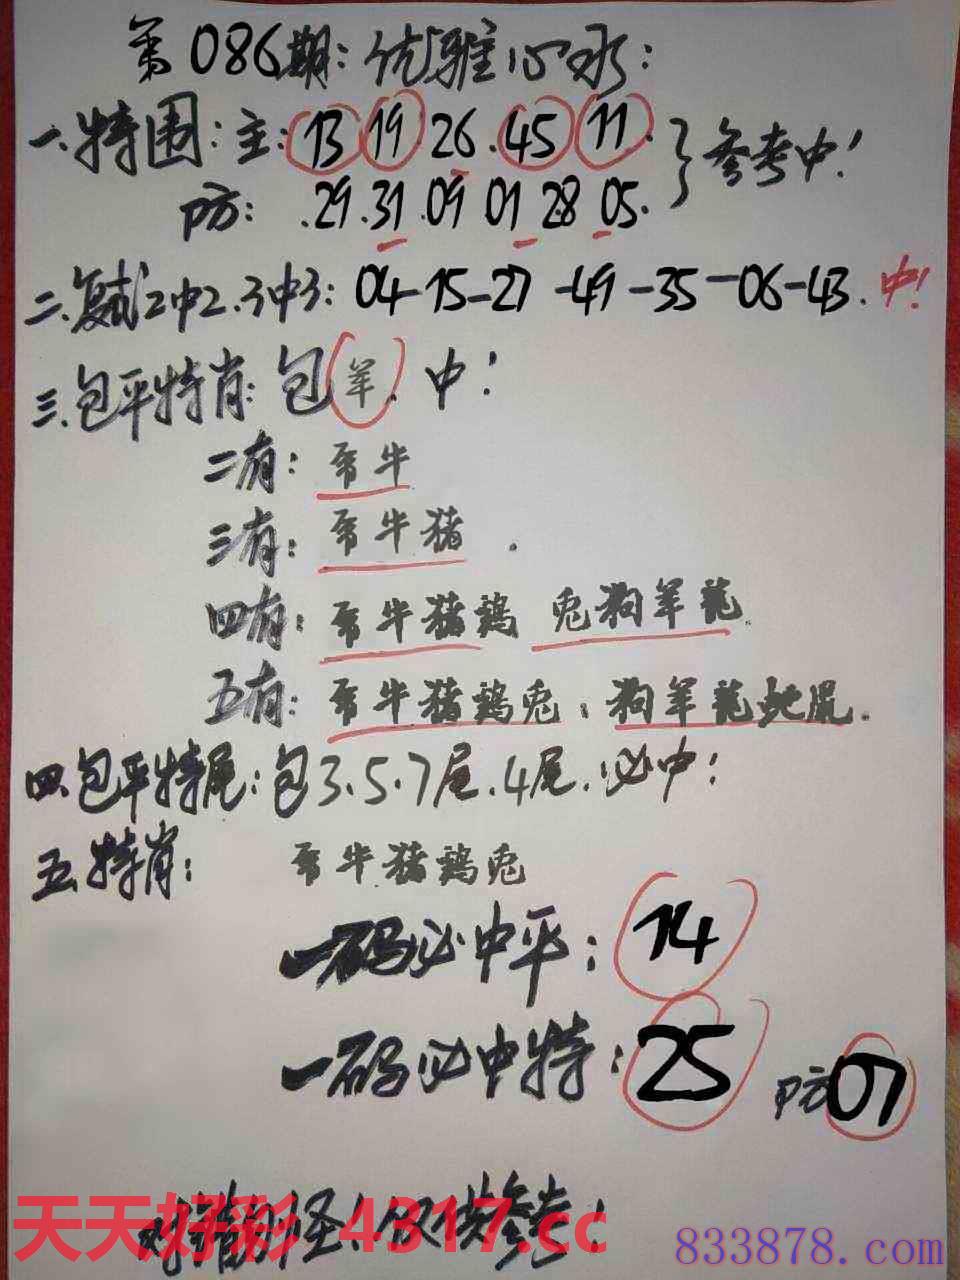 第086期:优雅心水:
一.特围:主:13 19 26.45 11.
}参考中!
防: .29.31.09 01 28 05.
二.复试2中2.3中3: 04-15-27-49-35-06-43.中!
三.包平特肖:包羊.中!
二有: 牛
三有: 牛猪.
四有: 牛猪鸡 兔狗羊龙.
五有: 牛猪鸡兔:狗羊龙蛇鼠.
四.包平特尾:包3.5.7尾.4尾.必中!
五.特肖: 牛.猪鸡兔
一码必中平: 14
一码必中特: 25 防07
对错勿怪!仅供参考!
天天好彩 4317.cc
833878.com